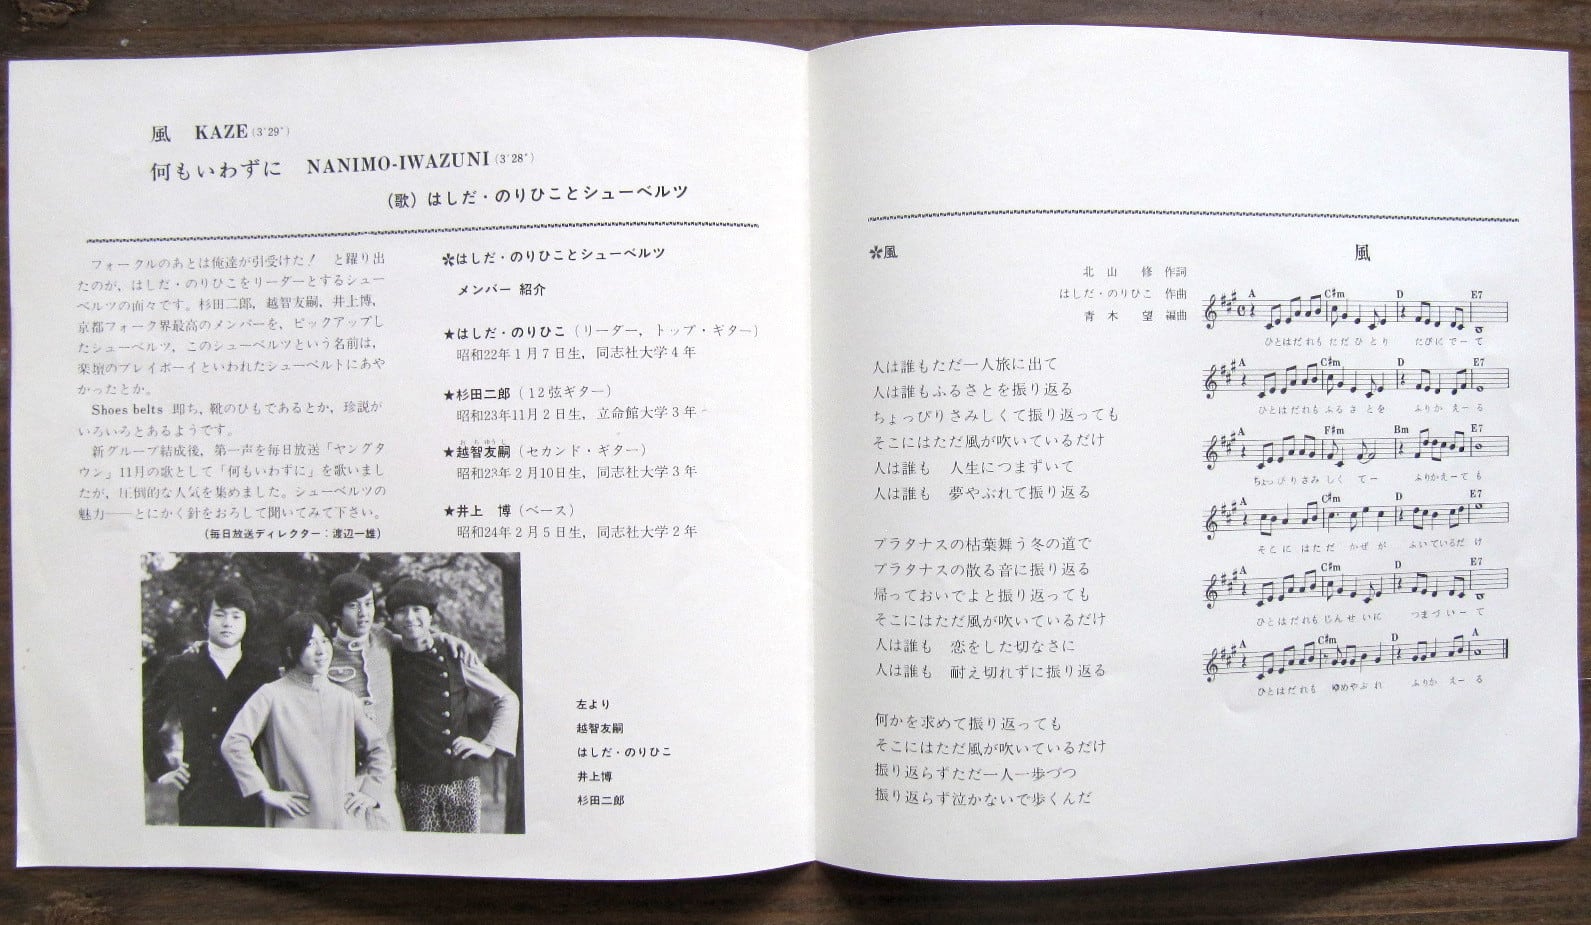 風 KAZE (3′29″)
何もいわずに NANIMO-IWAZUNI (3′28″)
(歌) はしだ・のりひことシューベルツ
フォークルのあとは俺達が引受けた! と躍り出
たのが、はしだ・のりひこをリーダーとするシュー
ベルツの面々です。杉田二郎，越智友嗣，井上博，
京都フォーク界最高のメンバーを、ピックアップし
たシューベルツ，このシューベルツという名前は，
楽壇のプレイボーイといわれたシューベルトにあや
かったとか。
Shoes belts 即ち，靴のひもであるとか，珍説が
いろいろとあるようです。
新グループ結成後，第一声を毎日放送「ヤングタ
ウン」11月の歌として「何もいわずに」を歌いまし
たが，圧倒的な人気を集めました。シューベルツの
魅力——とにかく針をおろして聞いてみて下さい。
(毎日放送ディレクター：渡辺一雄)
✽はしだ・のりひことシューベルツ
メンバー 紹介
★はしだ・のりひこ (リーダー，トップ・ギター)
昭和22年1月7日生，同志社大学4年
★杉田二郎 (12弦ギター)
昭和23年11月2日生，立命館大学3年
おちゆうし
★越智友嗣 (セカンド・ギター)
昭和23年2月10日生，同志社大学3年
★井上 博 (ベース)
昭和24年2月5日生，同志社大学2年
左より
越智友嗣
はしだ・のりひこ
井上博
杉田二郎
✽風
北山 修 作詞
はしだ・のりひこ 作曲
青木 望 編曲
人は誰もただ一人旅に出て
人は誰もふるさとを振り返る
ちょっぴりさみしくて振り返っても
そこにはただ風が吹いているだけ
人は誰も 人生につまずいて
人は誰も 夢やぶれて振り返る
プラタナスの枯葉舞う冬の道で
プラタナスの散る音に振り返る
帰っておいでよと振り返っても
そこにはただ風が吹いているだけ
人は誰も 恋をした切なさに
人は誰も 耐え切れずに振り返る
何かを求めて振り返っても
そこにはただ風が吹いているだけ
振り返らずただ一人一歩づつ
振り返らず泣かないで歩くんだ
風
A C#m D E7
ひとはだれも ただ ひ とり たびに で ー て
A C#m D E7
ひとはだれも ふる さ とを ふりか え ー る
A F#m Bm E7
ちょっぴりさみ しく て ー ふりかえ ー て も
A C#m D E7
そこ に はただ かぜ が ふいているだ け
A C#m D E7
ひとはだれも じん せ いに つまづい ー て
A C#m D A
ひとはだれも ゆめやぶ れ ふりか え ー る